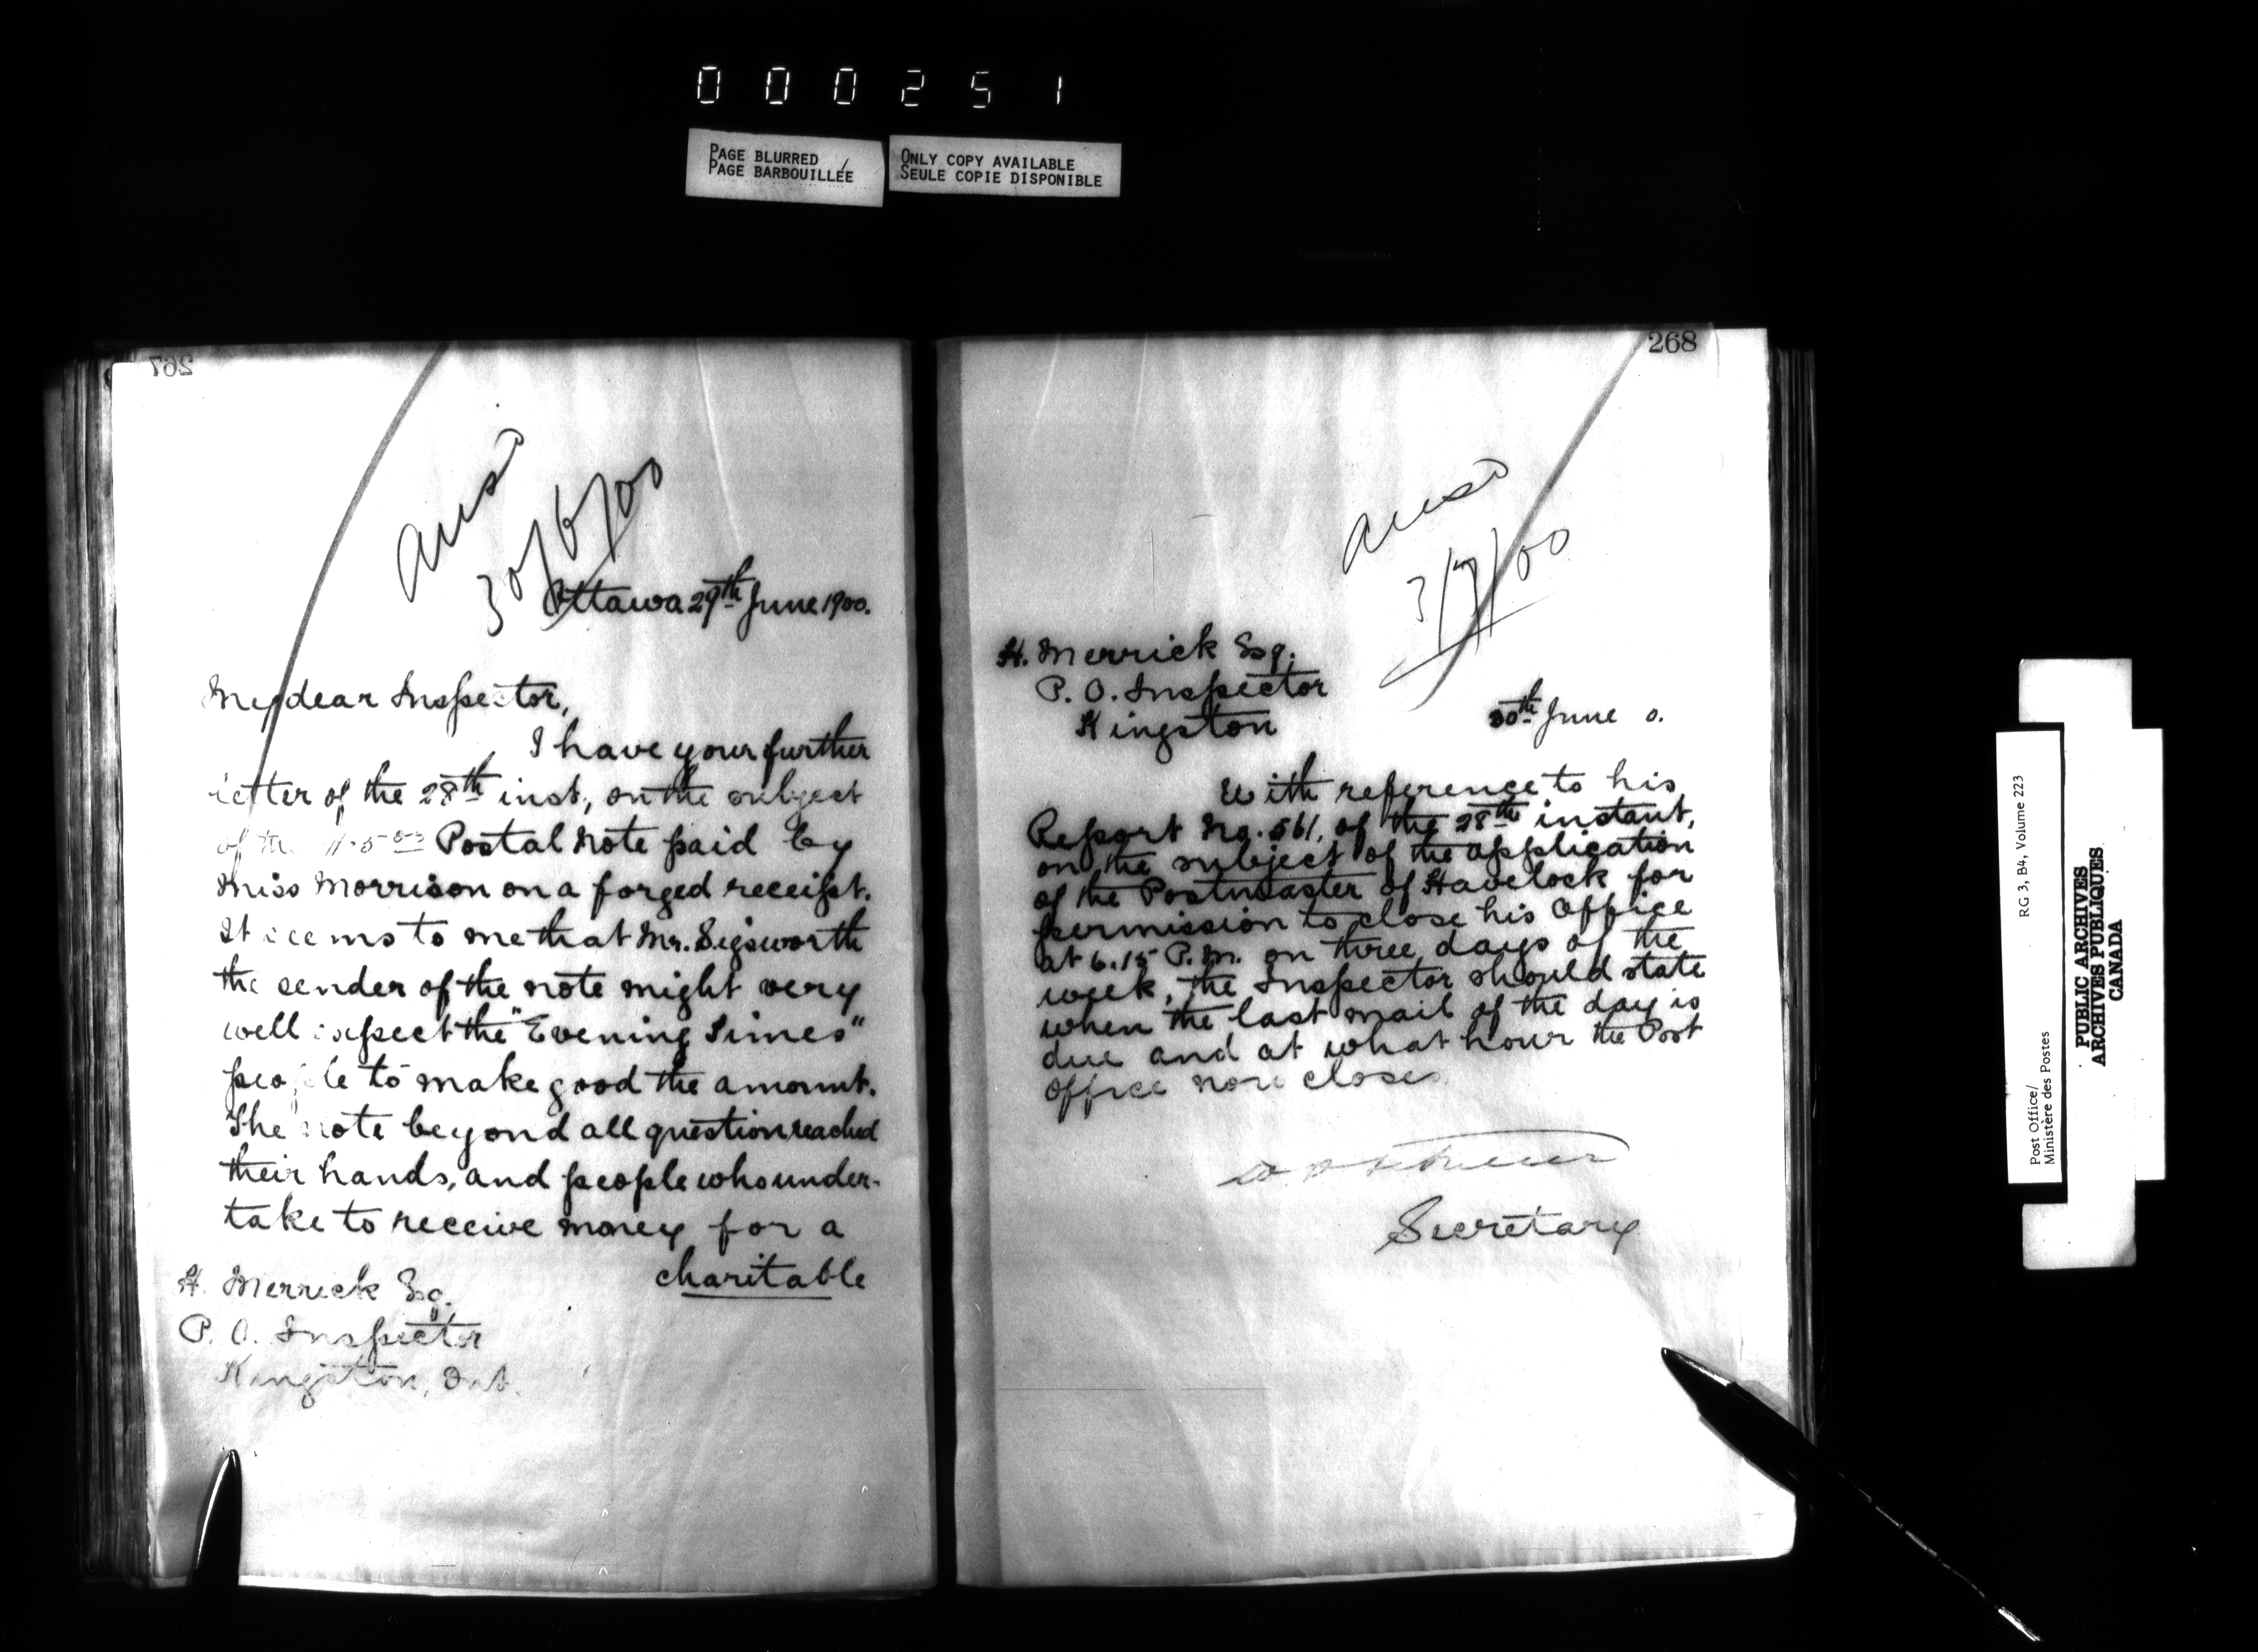 000251
PAGE BLURRED
PAGE BARBOUILLÉE
ONLY COPY AVAILABLE
SEULE COPIE DISPONIBLE
267
Ansd
30/6/00
Ottawa 29th June 1900.
My dear Inspector,
I have your further
letter of the 28th inst., on the subject
of the Postal Note paid by
Miss Morrison on a forged receipt.
It seems to me that Mr. Sigsworth
the sender of the note might very
well expect the "Evening Times"
people to make good the amount.
The note beyond all question reached
their hands, and people who under-
take to receive money for a
charitable
H. Merrick Esq.
P. O. Inspector
Kingston, Ont.
268
Ansd
3/7/00
H. Merrick Esq.
P. O. Inspector
Kingston
30th June 0.
With reference to his
Report No. 561, of the 28th instant,
on the subject of the application
of the Postmaster of Havelock for
permission to close his Office
at 6.15 P.M. on three days of the
week, the Inspector should state
when the last mail of the day is
due and at what hour the Post
Office now closes
Secretary
Post Office/
Ministère des Postes
RG 3, B4, Volume 223
PUBLIC ARCHIVES
ARCHIVES PUBLIQUES
CANADA